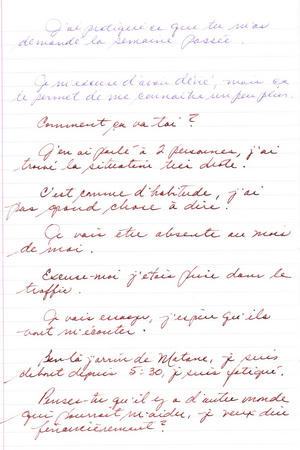 J'ai pratiqué ce que tu m'as
demandé la semaine passée.
Je m'excuse d'avoir déiné, mais ça
te permet de me connaître un peu plus.
Comment ça va toi ?
J'en ai parlé à 2 personnes, j'ai
trouvé la situation très drôle.
C'est comme d'habitude, j'ai
pas grand chose à dire.
Je vais être absente au mois
de mai.
Excuse-moi j'étais prise dans le
traffic.
Je vais essayer, j'espère qu'ils
vont m'écouter.
Ben là j'arrive de Matane, je suis
debout depuis 5:30, je suis fatigué.
Penses-tu qu'il y a d'autre monde
qui pourrait m'aider, je veux dire
financièrement ?